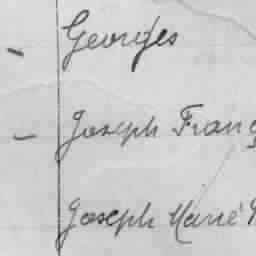 Georges
Joseph Franç
Joseph Marié